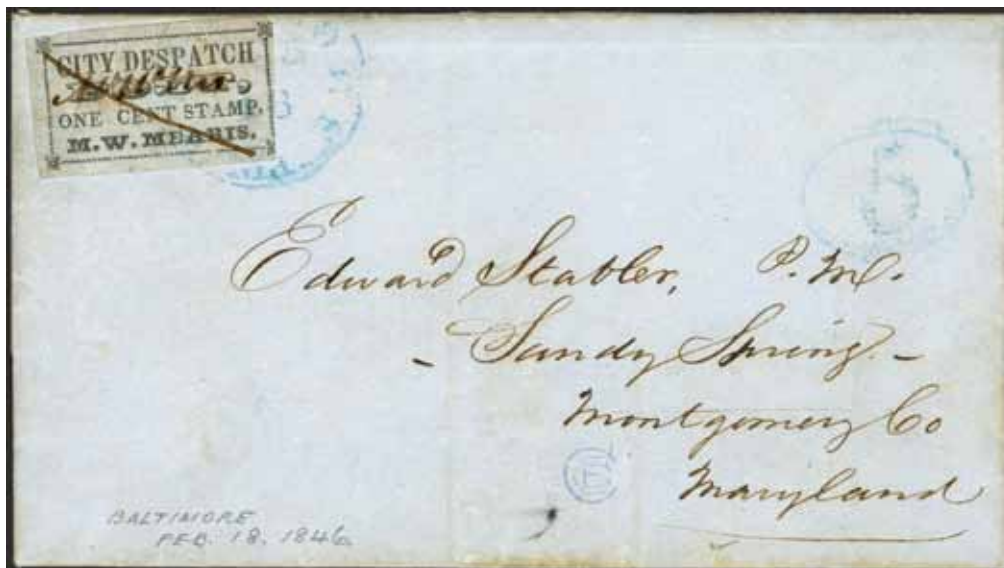 CITY DESPATCH
ONE CENT STAMP.
M.W. MEARIS.
5
Edward Stabler, P. M.
- Sandy Spring. -
Montgomery Co
Maryland
BALTIMORE
FEB. 18. 1846